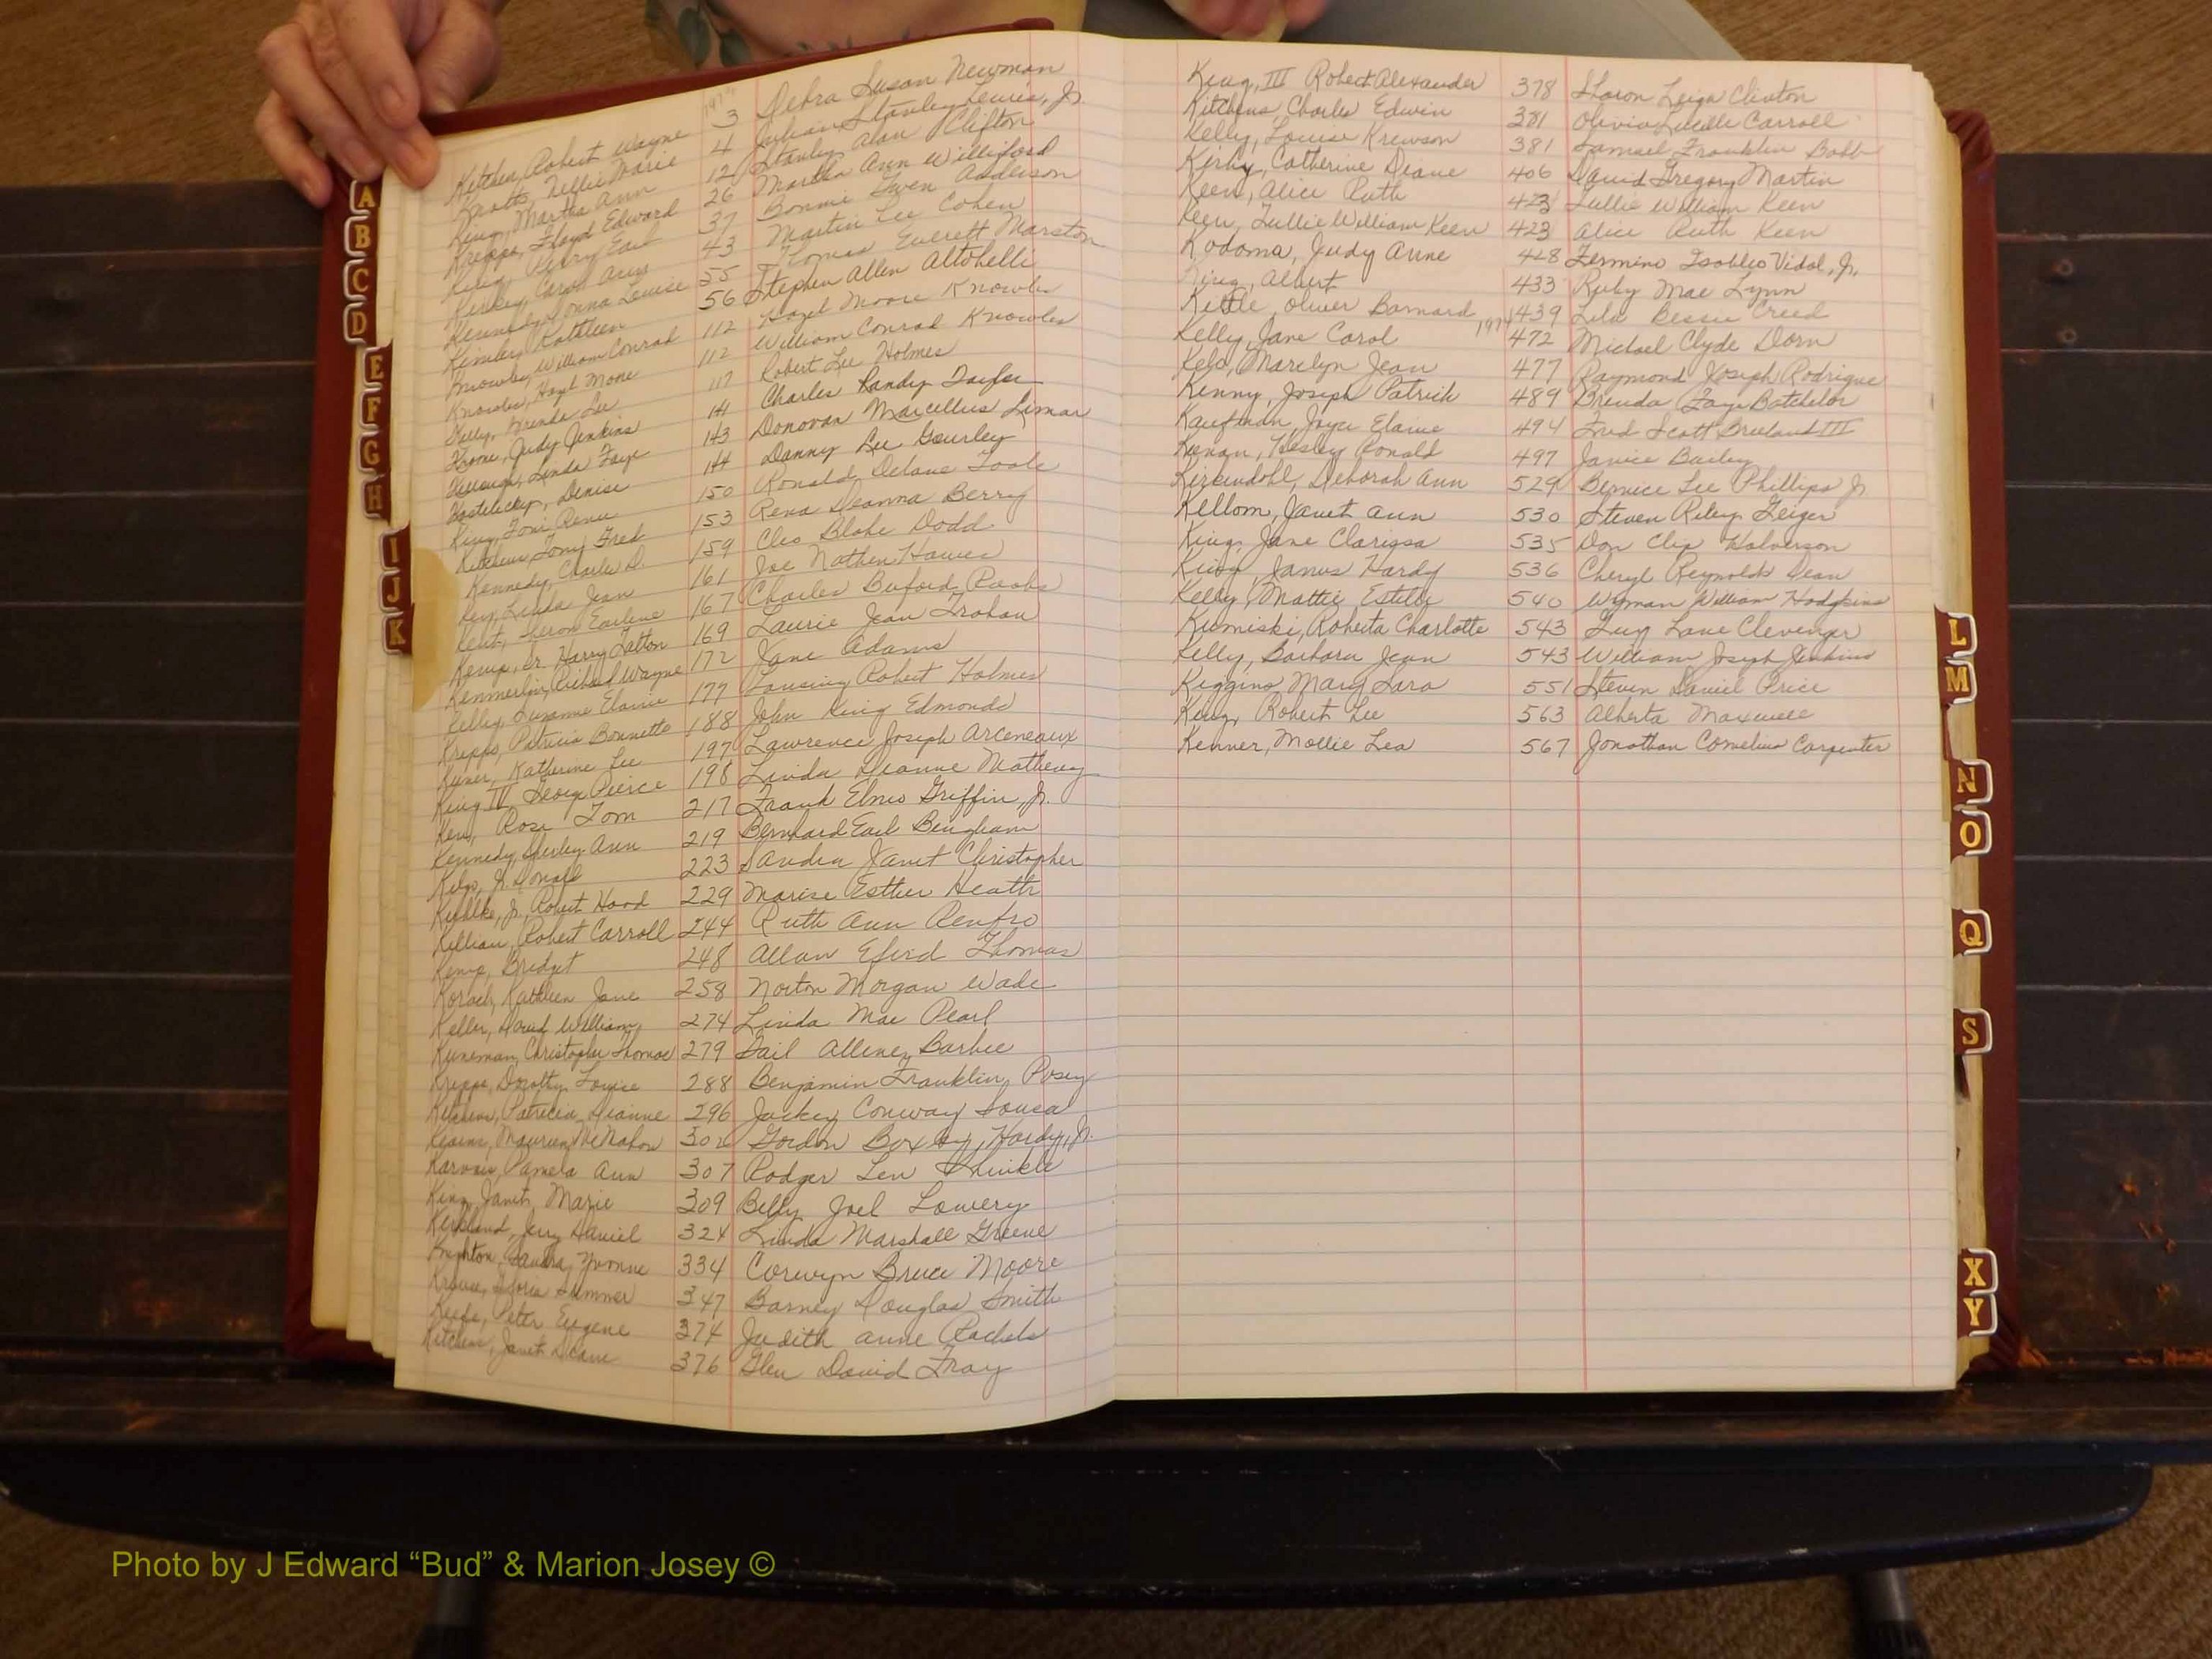 Kitchen, Robert Wayne 3 Debra Susan Newman
Knotts, Nellie Marie 4 Julian Stanley Lewis, Jr.
King, Martha Ann 12 Stanley Alan Clifton
Krepps, Floyd Edward 26 Martha Ann Williford
King, Perry Earl 37 Bonnie Gwen Anderson
Carol Ann 43 Martin Lee Cohen
Kennedy, Donna Louise 55 Thomas Everett Marston
Kathleen 56 Stephen Allen Altobelli
Knowles, William Conrad 112 Hazel Moore Knowles
Knowles, Hazel Moore 112 William Conrad Knowles
Kelly, Brenda Lee 117 Robert Lee Holmes
Krone, Judy Jenkins 141 Charles Randy
Linda Faye 143 Donovan Marcellus
Denise 144 Danny Lee Gourley
King, Toni Renee 150 Ronald Delane Toole
Kitchens Tony Fred 153 Rena Deanna Berry
Kennedy, Charles D. 159 Cleo Blake Dodd
Key, Linda Jean 161 Joe Nathen Hawes
Kent, Earlene 167 Charles Buford
Kemp, Sr. Harry Latton 169 Laurie Jean Trohan
Kemmerlin, Richard Wayne 172 Jane Adams
Kelley, Suzanne Elaine 177 Lansing Robert Holmes
Krepps, Patricia Bonnette 188 John King Edmonds
Katherine Lee 197 Lawrence Joseph Arceneaux
King IV George Pierce 198 Linda Dianne Matheny
Rose Tom 217 Frank Elmo Griffin, Jr.
Kennedy, Shirley Ann 219 Bernhard Earl Bingham
Jr. Donald 223 Sandra Janet Christopher
Jr. Robert Hood 229 Marise Esther Heath
Killian, Robert Carroll 244 Ruth Ann Renfro
Kemp, Bridget 248 Allan Efird Thomas
Kathleen Jane 258 Norton Morgan Wade
Keller, David William 274 Linda Mae Pearl
Kuneman, Christopher Thomas 279 Gail Barbee
Krepps, Dorothy Louise 288 Benjamin Franklin Posey
Patricia Dianne 296 Jackey Conway Sousa
Kearns, Maureen McMahon 302 Gordon Boxby Hardy, Jr.
Pamela Ann 307 Rodger Len Shinkle
King, Janet Marie 309 Billy Joel Lowery
Kirkland, Jerry Daniel 324 Linda Marshall Greene
Knighton, Sandra Yvonne 334 Corwyn Bruce Moore
Krause, Gloria Sumner 347 Barney Douglas Smith
Keefe, Peter Eugene 374 Judith Anne Rachels
Kitchens, Janet Diane 376 Glen David Fray
King, III Robert Alexander 378 Sharon Leigh Clinton
Kitchens Charles Edwin 381 Olivia Lucille Carroll
Kelly, Louise Krewson 381 Samuel Franklin Babb
Kirby, Catherine Diane 406 David Gregory Martin
Keen, Alice Ruth 423 Lullie William Keen
Keen, Lullie William Keen 423 Alice Ruth Keen
Kodama, Judy Anne 428 Fermino Vidal, Jr.
King, Albert 433 Ruby Mae Lynn
Kettle, Oliver Barnard 439 Lila Bessie Creed
Kelly, Jane Carol 472 Michael Clyde Dorn
Marilyn Jean 477 Raymond Joseph Rodrigue
Kenny, Joseph Patrick 489 Brenda Faye Batchelor
Kaufman, Joyce Elaine 494 Fred Scott Breeland III
Keenan, Wesley Ronald 497 Janice Bailey
Kirkendohl, Deborah Ann 529 Bernice Lee Phillips Jr
Kellom, Janet Ann 530 Steven Riley Geiger
King, Jane Clarissa 535 Don Clip Halverson
King, James Hardy 536 Cheryl Reynolds Dean
Kelly, Mattie Estelle 540 Wyman William Hodgkins
Kumiski, Roberta Charlotte 543 Guy Lane Clevenger
Kelly, Barbara Jean 543 William Joseph Jenkins
Keggins Mary Lara 551 Steven Daniel Price
King, Robert Lee 563 Alberta Maxwell
Kenner, Mollie Lea 567 Jonathan Cornelius Carpenter
A
B
C
D
E
F
G
H
I
J
K
L
M
N
O
Q
S
X
Y
Photo by J Edward “Bud” & Marion Josey ©